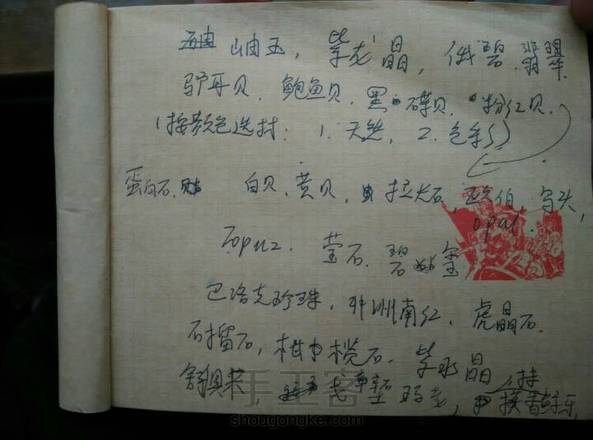 岫玉，紫龙晶，低碧，翡翠
驴耳贝，鲍鱼贝，黑碟贝，粉红贝，
（按颜色选材：1. 天然，2. 色系）
蛋白石， 白贝，黄贝，拉长石，
opal
萤石，碧玺
巴洛克珍珠，非洲南红，虎晶石，
石榴石，橄榄石，紫水晶
舒俱莱， 玛瑙，
手工客
shougongke.com